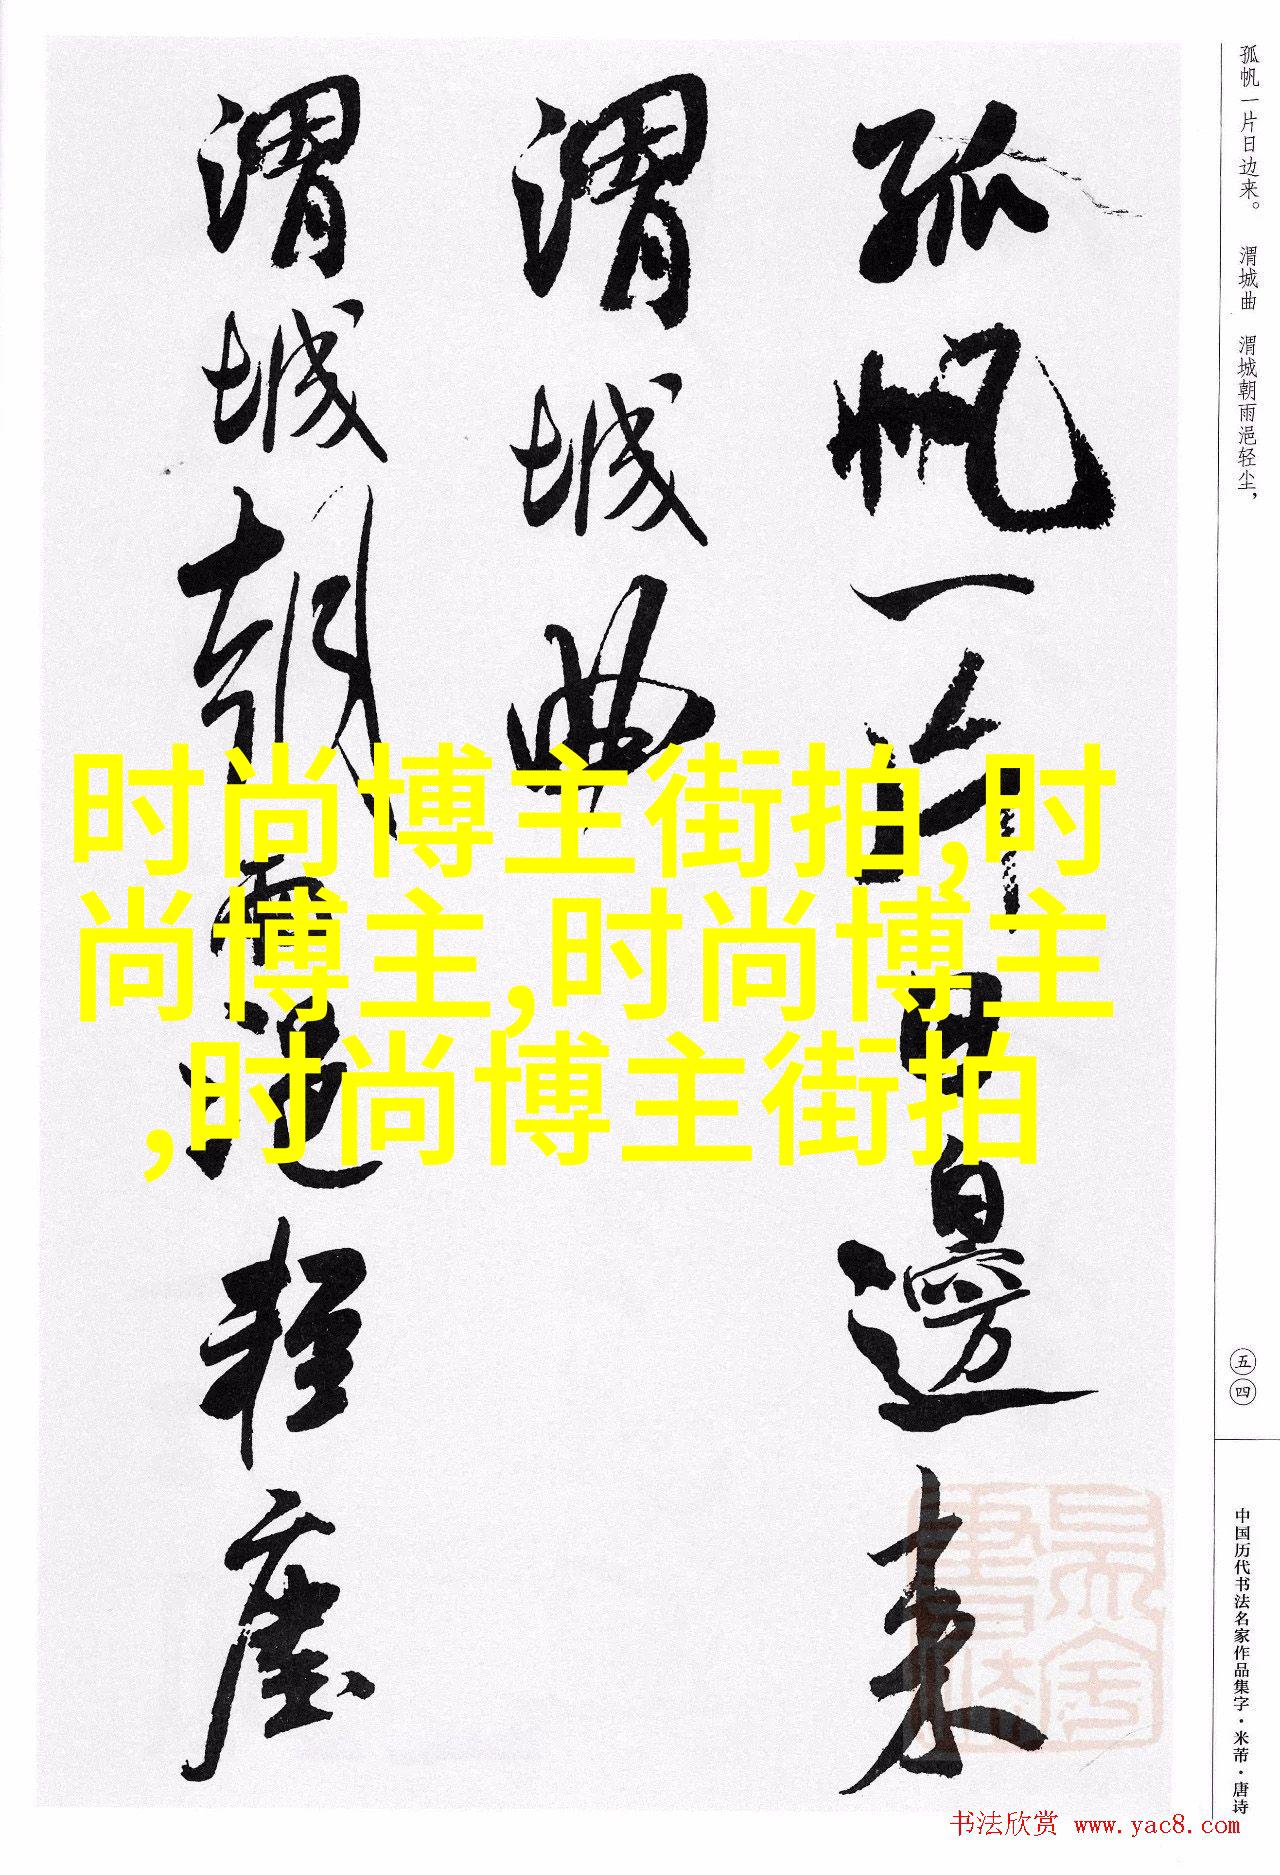 孤帆一片日边来。 渭城曲 渭城朝雨浥轻尘，
孤帆一片日邊来
渭城曲
渭城朝雨浥轻塵
时尚博主街拍,时
尚博主,时尚博主
,时尚博主街拍
五四
中国历代书法名家作品集字·米芾·唐诗
书法欣赏 www.yac8.com